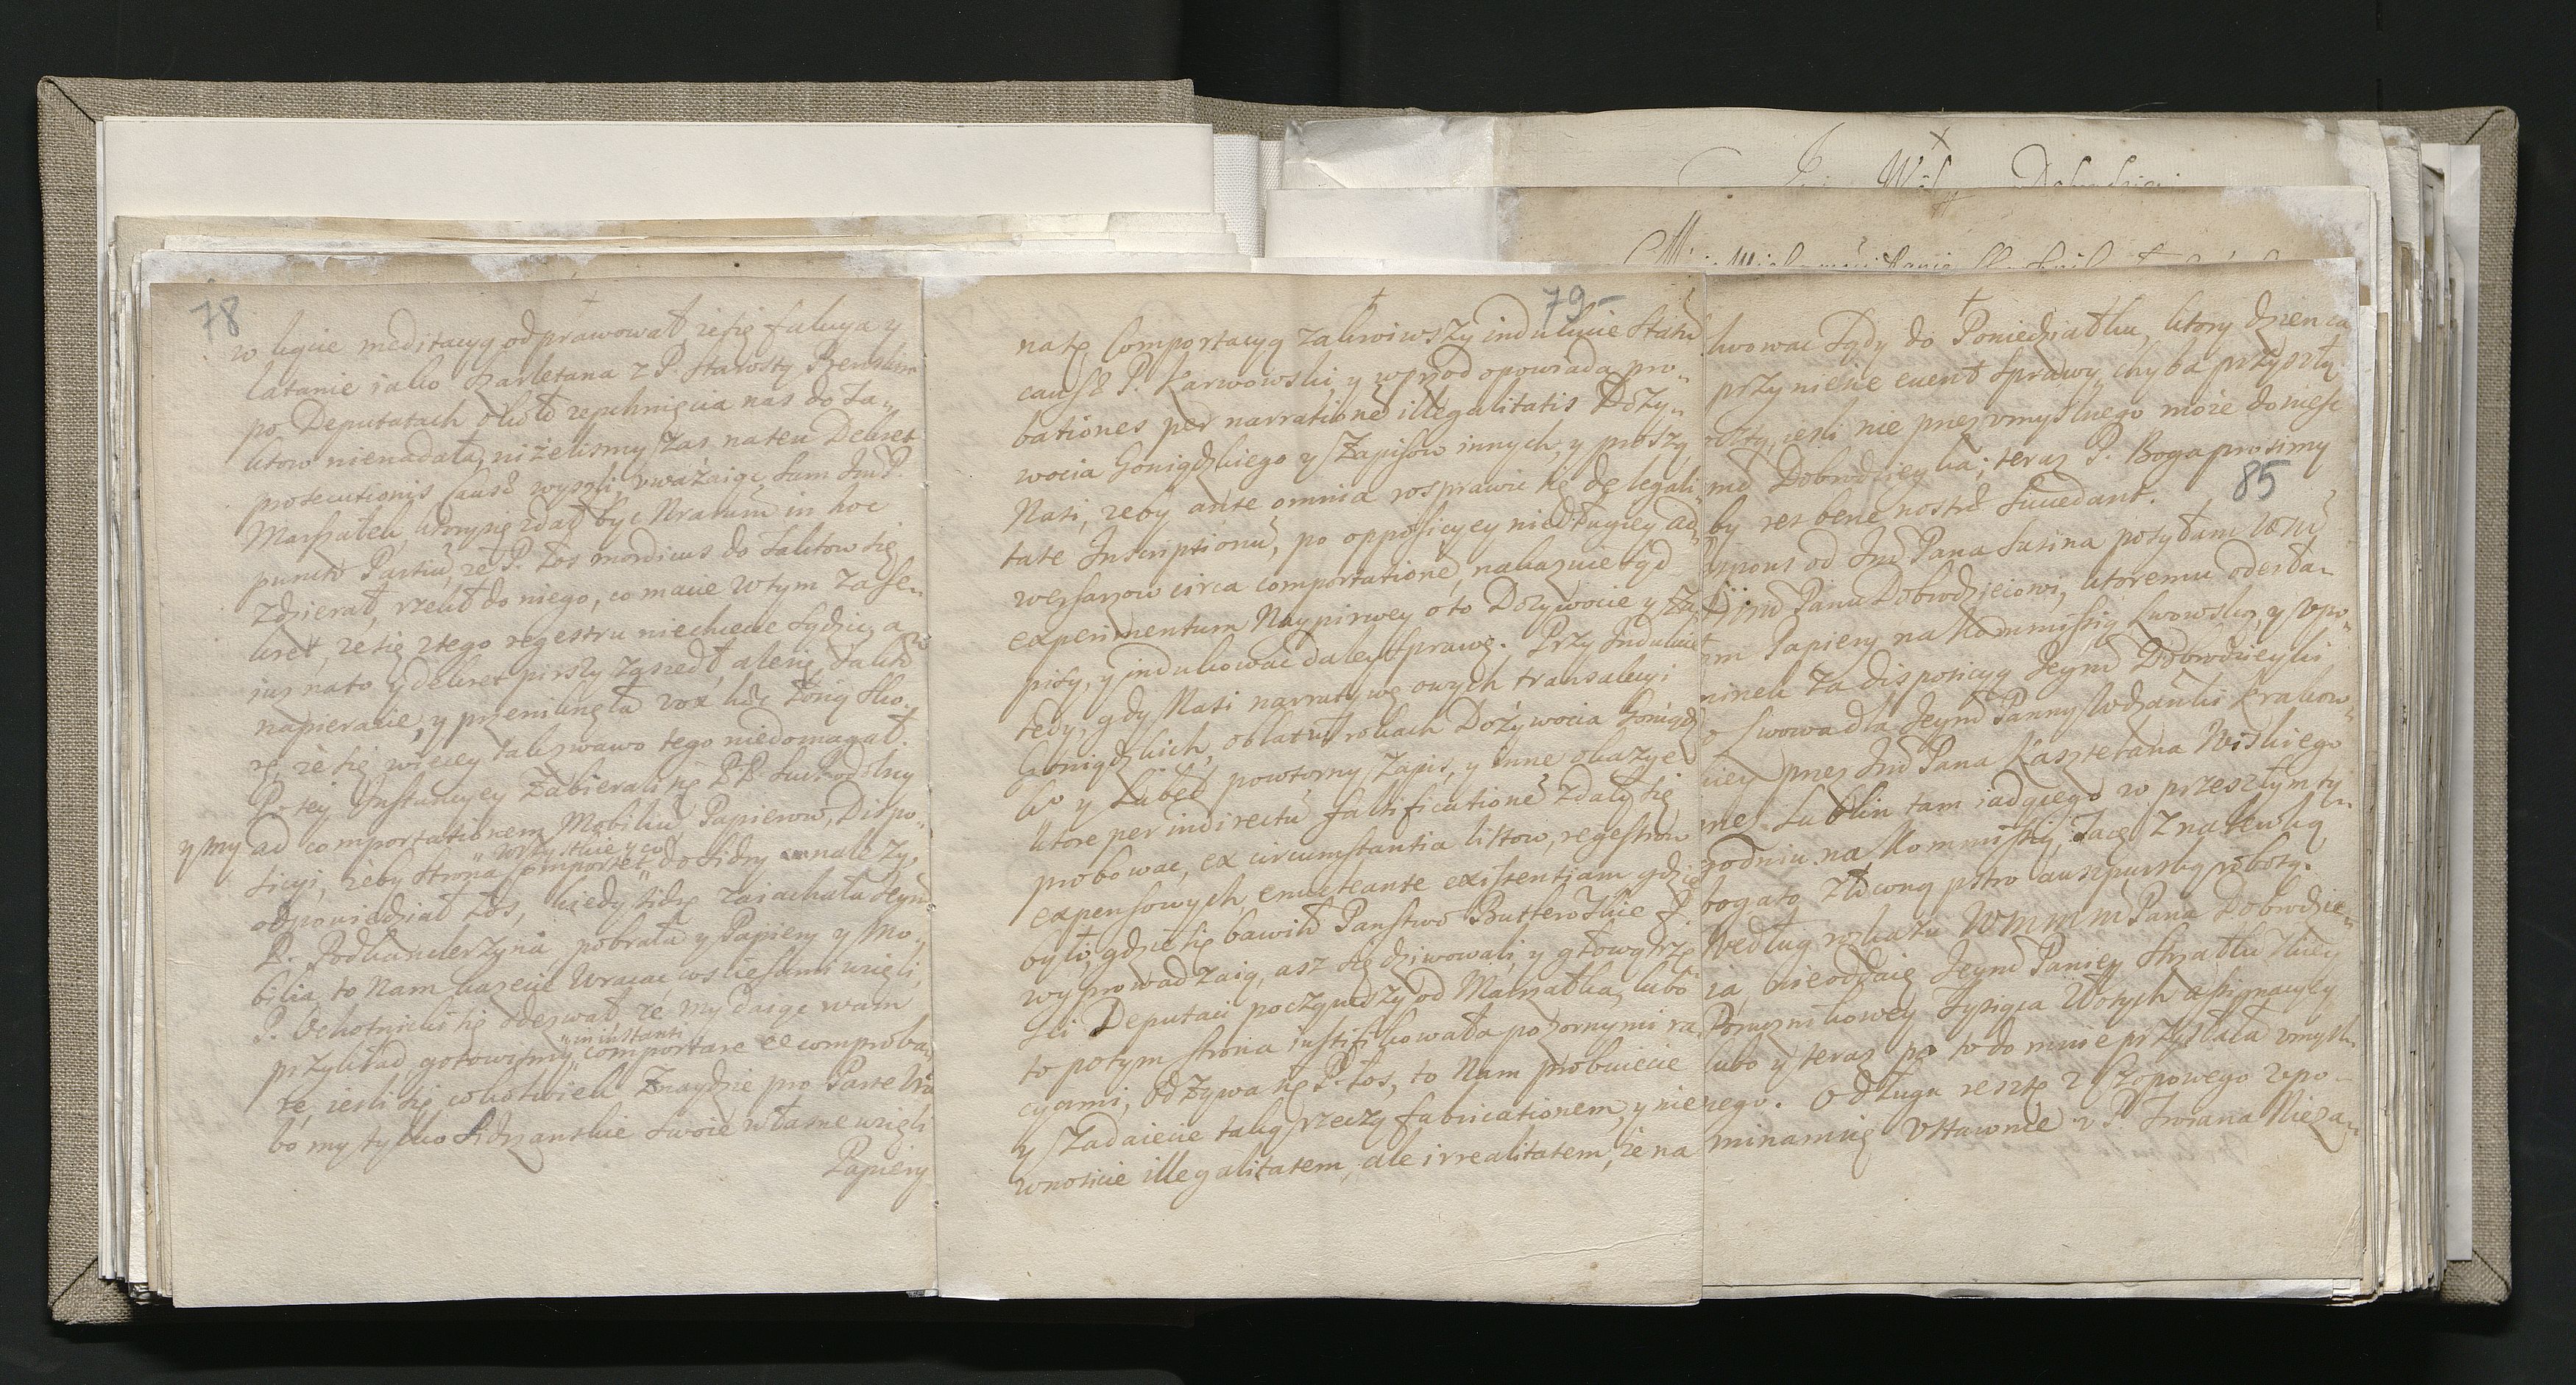 78
w kącie meditacyą odprawował, że się faluya y
latanie iako szarletana z P. Starostą
po Deputatach około zepchnięcia nas do Ta„
ktow nienadała, niżelismy zas na ten Dekret
prosecutionis causæ wyszli, uważaiąc sam Jm P.
Marszałek, ktory się zdał byc Nrarum in hoc
puncto Partiu, że P. Łos mordicus do Taktow się
zdzierał, rzekł do niego, co macie w tym za se„
kret, że się z tego regestru niechcecie sądzic, a
iuż na to y dekret pirszy zaszedł, ale się Taktow
napieracie, y przeniknęła vox hæc Łosią sko„
rę, że się więcey tak żwawo tego niedomagał.
Po tey Instancyey zabierali się PP. Suchodolscy
y my ad comportationem Mobiliu, Papierow, Dispo„
sicyi, żeby strona comportet „wszystkie y co„ do Sidry należy,
odpowiedział Łos, kiedy Sidrę zaiachała Jeym
P. Podkanclerzyna, pobrała y Papiery y Mo„
bilia, to Nam każecie wracac coscie sami wzięli,
P. Ochotnicki się odezwał że my daiąc wam
przykład, gotowismy „in instanti„ comportare et comproba„
re, iesli się cokolwiek znaydzie pro Parte Vra
bo my tylko Sidrzanskie swoie własne wzięli
Papiery
79
natę Comportacyą zakroiwszy indukcie Statu
causæ P. Karwowski, y wprzod opowiada pro„
bationes per narratione illegalitatis Dozy„
wocia Goniądzkiego y Zapisow innych, y proszą
Nasi, zeby ante omnia rosprawic się de legali„
tate Inscriptionu, po opposicyey niedługiey ad„
wersarzow circa comportatione, nakazuie sąd
experimentum Naypirwey o to Dozywocie y Za„
pisy, y indukowac daley sprawę. Przy Indukcie
tedy, gdy Nasi narratywę owych transakcyi
Goniądzkich, oblat w rokach Dożywocia Goniądz
ko y Lubel powtorny zapis, y inne okazye
ktore per indirectu falsificatione zdały się
probowac, ex circumstantia listow, regestrow
expensowych, enucleante existentiam gdzie
byli, gdzie się bawili Panstwo Butterowie J.
wyprowadzaią, asz się dziwowali, y głową trzę
sli Deputaci począwszy od Marszałka, lubo
to potym strona iustifikowała pozornymi ra„
cyami, odzywa się P. Łos, to Nam probuiecie
y Zadaiecie taką rzeczy fabricationem, y nie
wnosicie illegalitatem, ale irrealitatem, że na
kwowac Sądy do Poniedziałku, ktory dzien ca
przyniesie event sprawy, chyba przyszłą
ocztą, iesli nie przez umyslnego może doniesc
md Dobrodzieyka; teraz P. Boga prosimy
by res bene nostræ succedant.
85
spons od Jm Pana Susina posyłam
Jmd Panu Dobrodzieiowi, ktoremu odesła„
m Papiery na Kommissią Lwowską, y upo„
minek za disposicyą Jeymd Dobrodzieyki
o Lwowa dla Jeymd Panny Wdzanki Krakow„
kiey przez Jmd Pana Kasztelana Wiskiego
nel Lublin tam iadącego w przeszłym ty„
godniu na Kommissię, Tacę z nalewką
bogato złoconą pstro auszpurską robotą.
Według rozkazu WMMM Pana Dobrodzie„
ia, nieoddaię Jeymd Paniey Strzałkowskiey
Tysiąca złotych assignacyey
lubo y teraz po to do mnie przysłała umysl„
nego. O długu resztę z Szopowego upo„
minamsię ustawnie u P. Iwana Nieza„